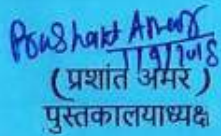 Prashant Amar
11/9/2018
( प्रशांत अमर )
पुस्तकालयाध्यक्ष